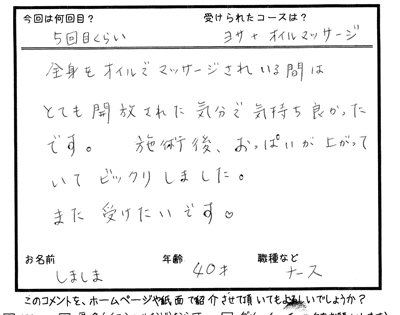 今回は何回目？ 受けられたコースは？
5回目くらい ヨサ + オイルマッサージ
全身をオイルでマッサージされている間は
とても開放された気分で気持ち良かった
です。 施術後、おっぱいが上がって
いてビックリしました。
また受けたいです。
お名前 年齢 職種など
しましま 40才 ナース
このコメントを、ホームページや紙面で紹介させて頂いてもよろしいでしょうか？